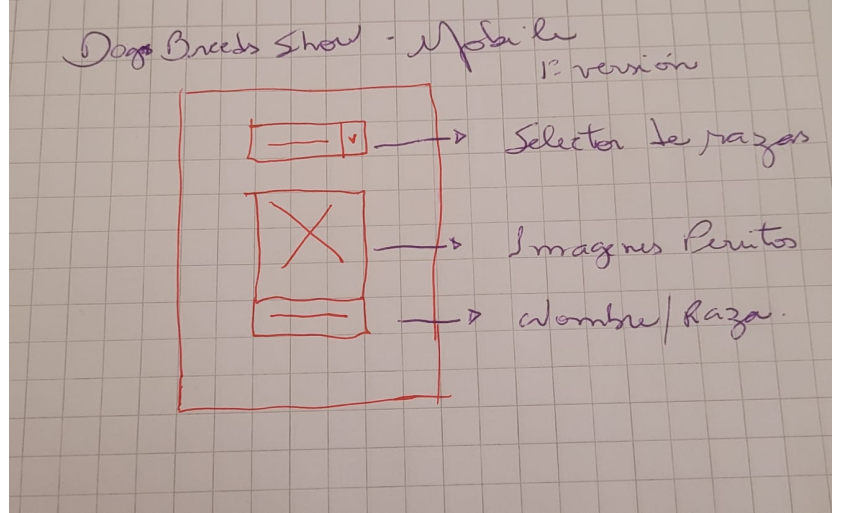 Dogs Breeds Show - Mobile
1ª versión
Selector de razas
Imagenes Perritos
Nombre/Raza.